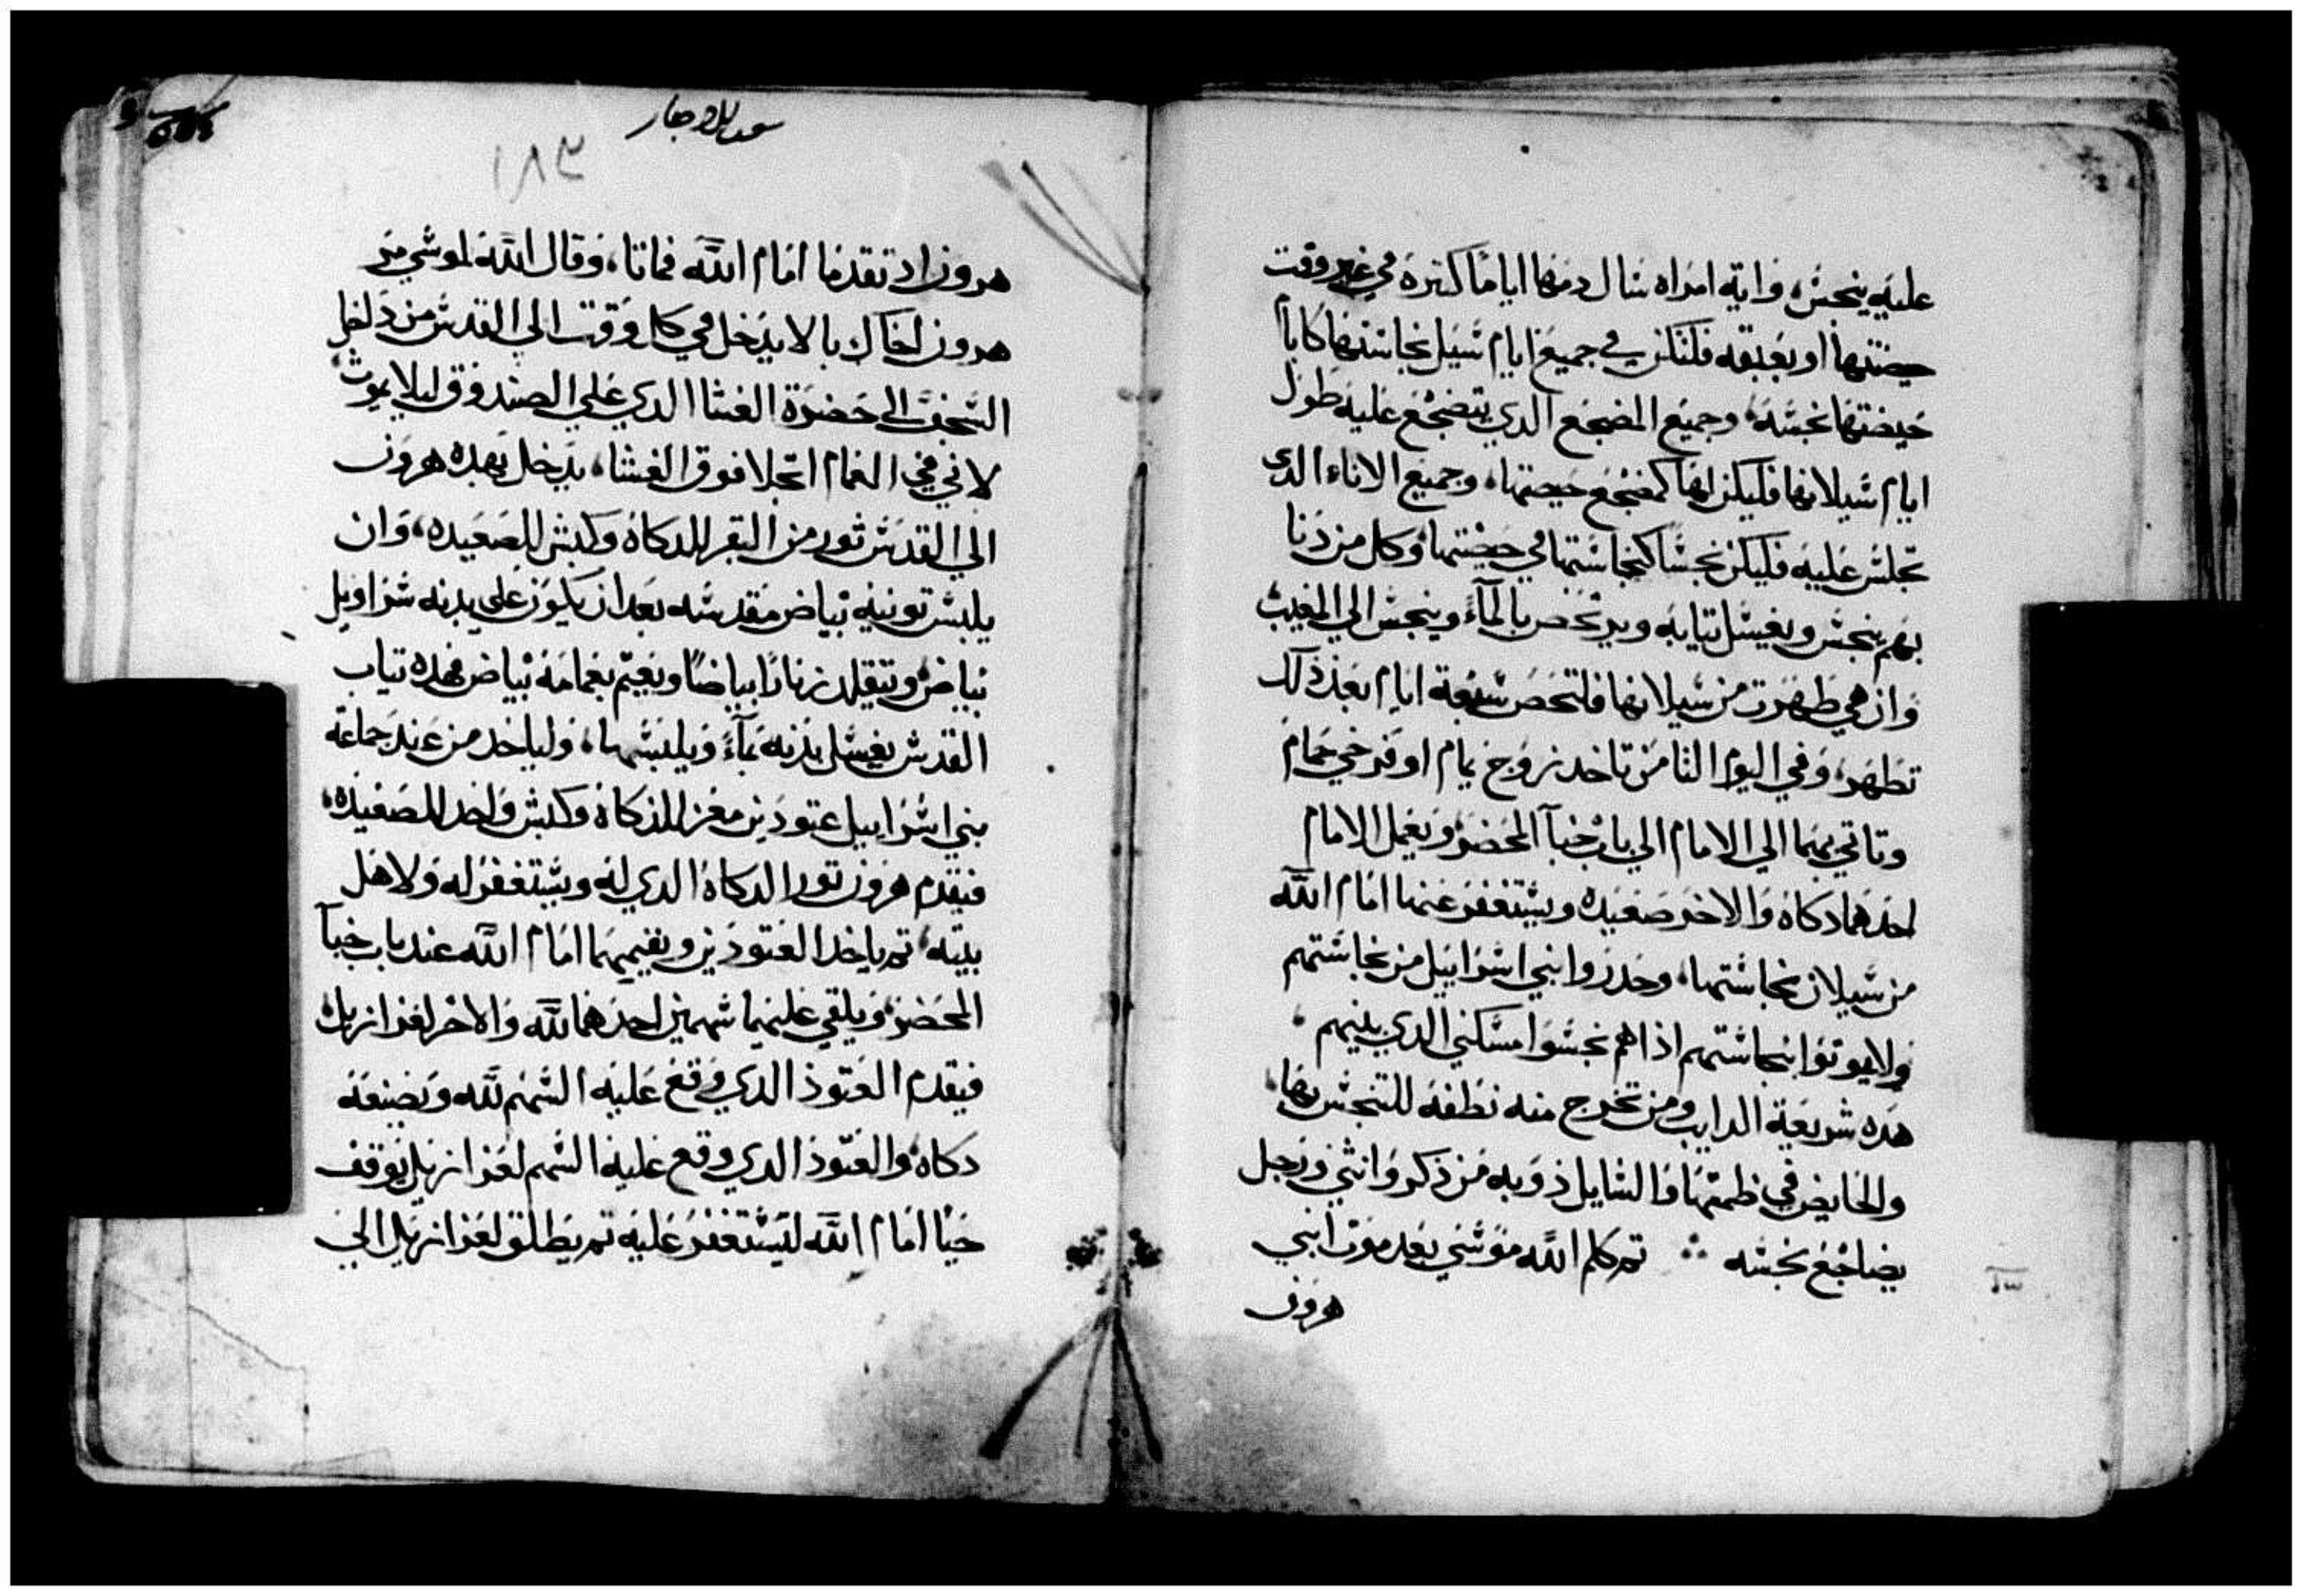 عليه ينجس، واية امراه سال دمها اياما كتيرة في غير وقت
حيضتها او بعقبه فلتكن في جميع ايام سيل نجاستها كايام
حيضتها نجسة، وجميع المضجع الدي تنضجع عليه طول
ايام سيلانها فليكن لها كمضجع حيضتها، وجميع الاناء الدي
تجلس عليه فليكن نجسا كنجاستها في حيضتها، وكل من دنا
بهم ينجس ويغسل تيابه ويرتحض بالمآء وينجس الي المغيب
وان هي طهرت من سيلانها فلتحص سبعة ايام بعد ذلك
تطهر، وفي اليوم التامن تاخد زوج يمام او فرخي حمام
وتاتي بهما الي الامام الي باب خبآ المحضر، ويعمل الامام
احدهما دكاة والاخر صعيدة ويستغفر عنها امام الله
من سيلان نجاستها، وحدروا بني اسراييل من نجاستهم
ولا يموتوا بنجاستهم اذا هم نجسوا مسكني الدي بينهم،
هده شريعة الدايب ومن تخرج منه نطفة للتنجس بها،
والحايض في طمتها والسايل ذوبه من ذكر وانثي ورجل
يضاجع نجسه ∴ تم كلم الله موسي بعد موت ابني
هرون
سعد بلا وجار
١٨٣
هرون اد تقدما امام الله فماتا، وقال الله لموسي مر
هرون اخاك بالا يدخل في كل وقت الي القدس من داخل
السجف الي حضرة الغشا الدي علي الصندوق ليلا يموت،
لاني في الغمام اتجلا فوق الغشا، يدخل بهده هرون
الي القدس تور من البقر للدكاة وكبش للصعيده، وان
يلبس تونيه بياض مقدسه بعد ان يكون علي بدنه سراويل
بياض، ويتقلد زنارا بياضا ويعتم بعمامة بياض فهده تياب
القدس يغسل بدنه بمآء ويلبسها، ولياخد من عند جماعة
بني اسراييل عتودين معز للذكاة وكبش واحد للصعيدة،
فيقدم هرون تور الدكاة الدي له ويستغفر له ولاهل
بيته، تم ياخد العتودين ويقيمهما امام الله عند باب خبآ
المحضر، ويلقي عليهما سهمين احدهما لله والاخر لعزازيل،
فيقدم العتود الدي وقع عليه السهم لله ويصنعه
دكاه، والعتود الدي وقع عليه السهم لعزازيل يوقف
حيا امام الله ليستغفر عليه تم يطلق لعزازيل الي